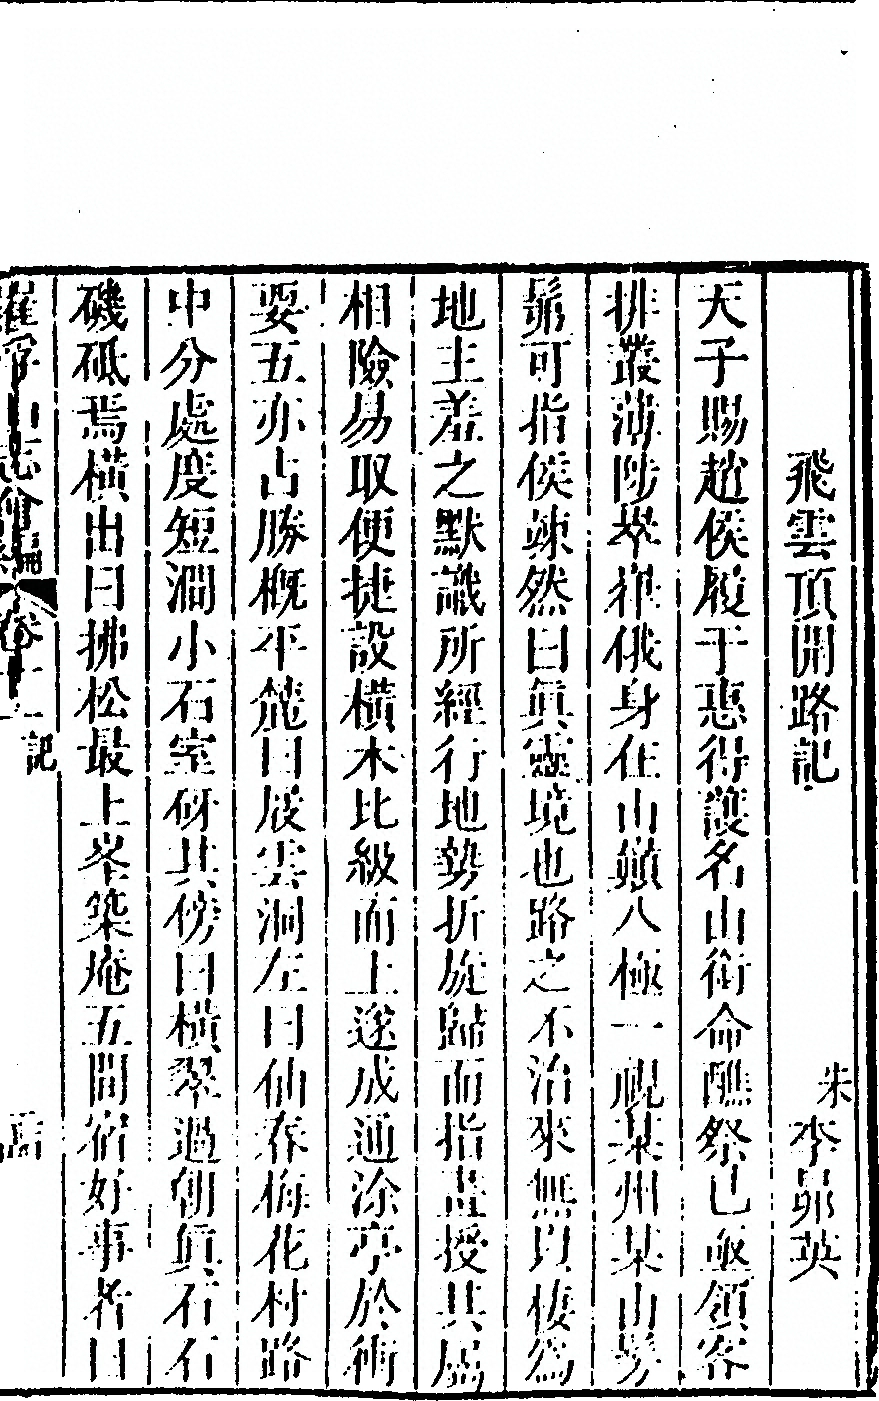 飛雲頂開路記
宋李昴英
天子賜趙侯履于惠得護名山銜命醮祭已亟領客
排叢薄陟崒嵂俄身在山巔八極一覗某州某山髣
髴可指侯竦然曰眞靈境也路之不治來無以棲為
地主羞之默識所經行地勢折旋歸而指畫授其屬
相險易取便捷設橫木比級而上遂成通涂亭於衝
要五亦占勝概平麓曰展雲洞左曰仙春梅花村路
中分處度短澗小石室砑其傍曰橫翠過朝眞石石
磯砥焉橫出曰拂松最上峯築庵五間宿好事者曰
羅浮山志會編 卷十一 記